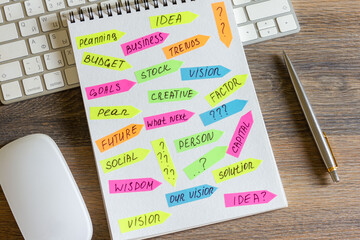 IDEA
Planning
BUSINESS
TRENDS
? ?
BUDGET
STOCK
VISION
GOALS
CREATIVE
FACTOR
PLAN
WHAT NEXT
???
FUTURE
PERSON
CAPITAL
SOCIAL
???
?
Solution
WISDOM
OUR VISION
IDEA?
VISION